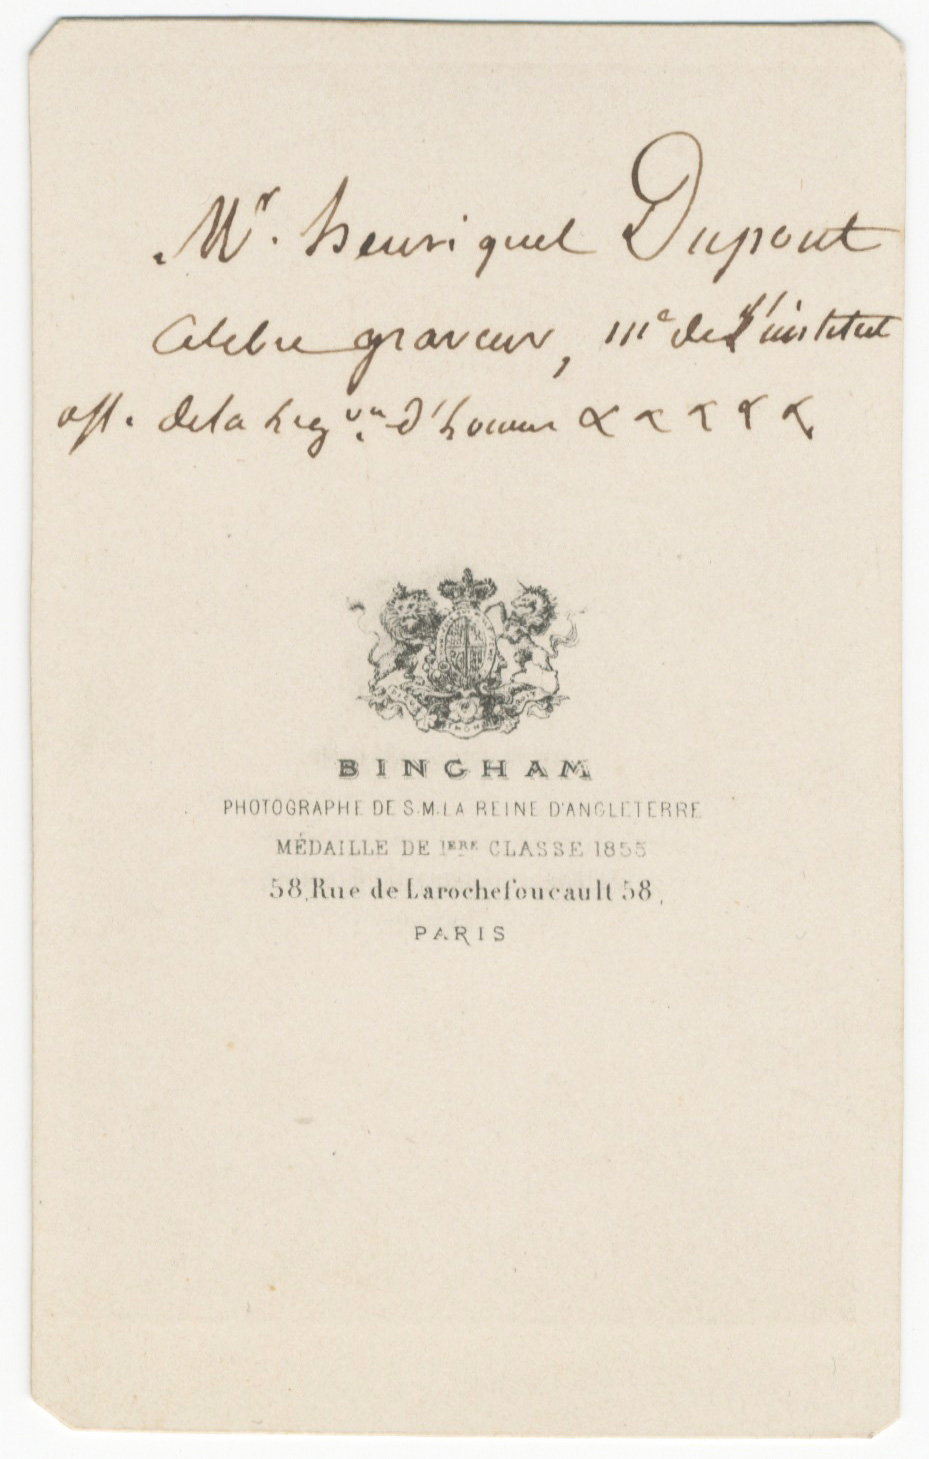 Mr. henriquel Dupont
Celebre graveur, me de l'institut
off. de la Leg.on d'honneur x x x x x
BINGHAM
PHOTOGRAPHE DE S.M. LA REINE D'ANGLETERRE
MÉDAILLE DE 1ERE CLASSE 1855
58, Rue de Larochefoucault 58,
PARIS